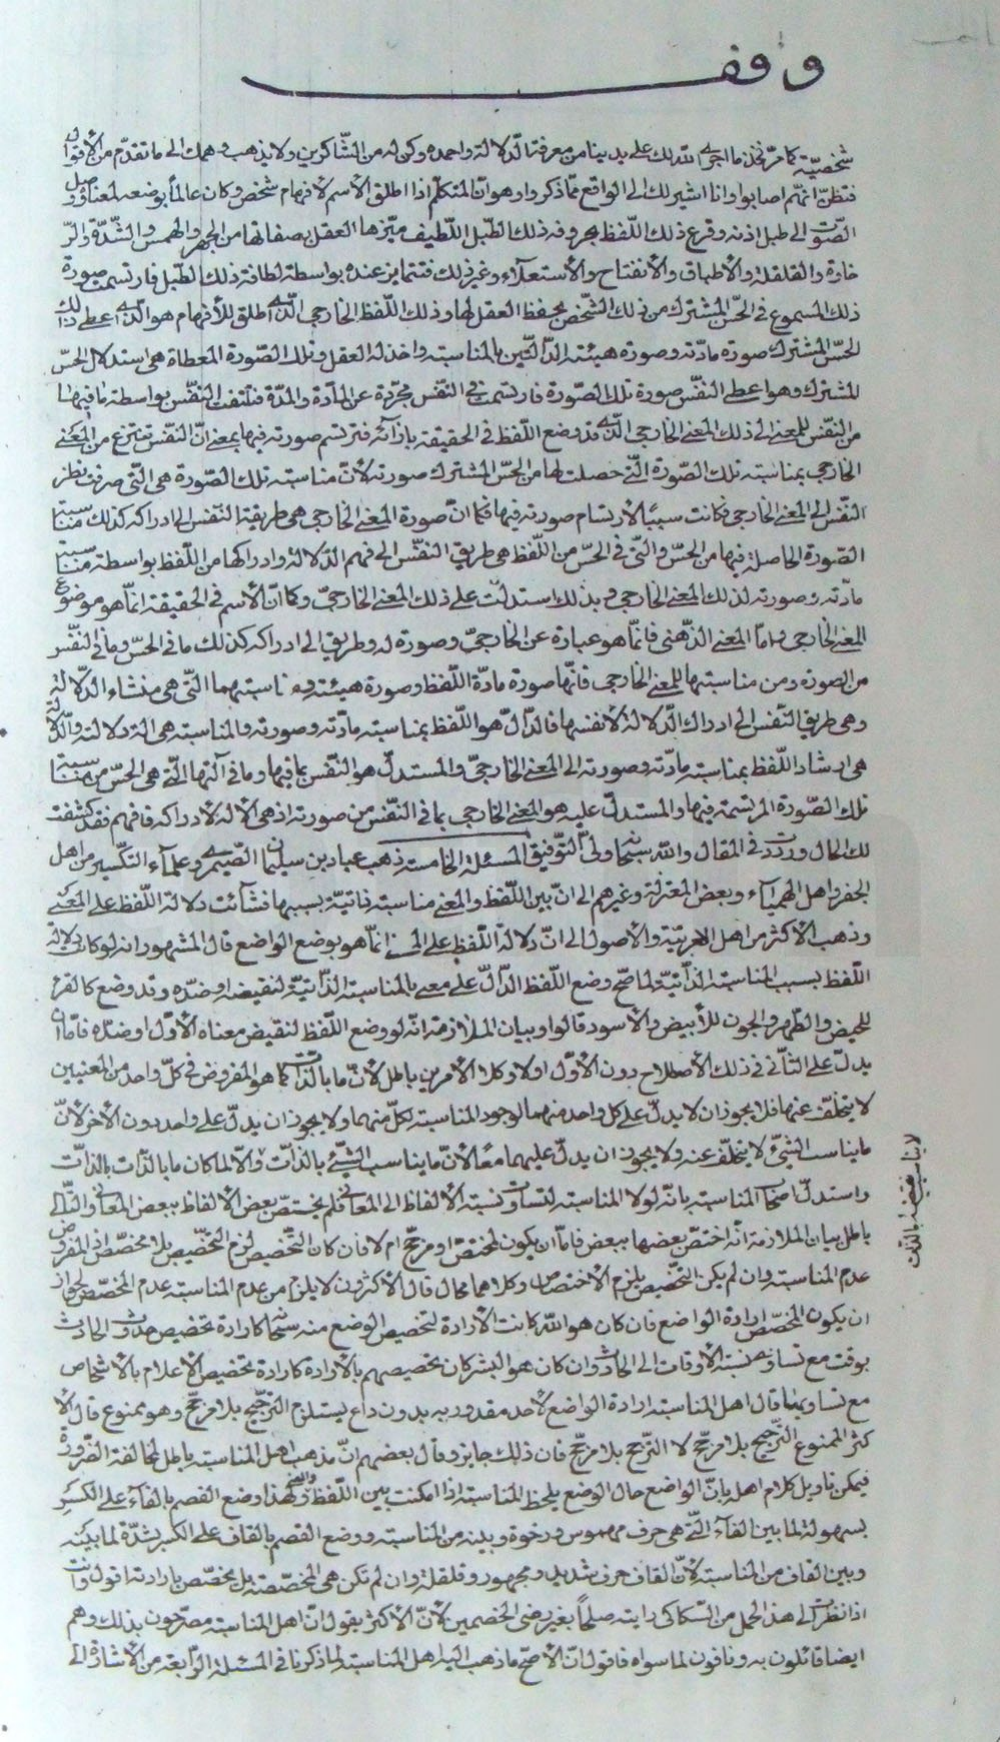 وقف
شخصيّة كما مرّ فخذ ما اجرى الله لك على يدينا من معرفة الدلالة واحمده وكن له من الشّاكرين ولا يذهب وهمك الى ما تقدّم من الأقوال
فتظنّ انّهم اصابوا وانا اشير لك الى الواقع ممّا ذكروا وهو انّ المتكلّم اذا اطلق الأسم لأفهام شخص وكان عالماً بوضعه لمعناه وصل
الصّوت الى طبل اذنه وقرع ذلك اللّفظ بحروفه ذلك الطّبل اللّطيف ميّزها العقل بصفاتها من الجهر والهمس والشّدّة والرّ
خاوة والقلقلة والأطباق والأنفتاح والأستعلاء وغير ذلك فتتمايز عنده بواسطة لطافة ذلك الطّبل فارتسمت صورة
ذلك المسموع في الحسّ المشترك من ذلك الشّخص بحفظ العقل لها وذلك اللّفظ الخارجي الّذى اطلق للأفهام هو الّذى اعطى ذلك
الحسّ المشترك صورة مادّته وصورة هيئته الدّالّتين بالمناسبة واخذ له العقل وتلك الصّورة المعطاة هى استدلال الحسّ
المشترك وهو اعطى النّفس صورة تلك الصّورة فارتسمت في النّفس مجرّدة عن المادّة والمدّة فتلتفت النّفس بواسطة ما فيها
من النّفس للمعنى الى ذلك المعنى الخارجي الّذى قد وضع اللّفظ في الحقيقة بازآئه فترتسم صورته فيها بمعنى انّ النّفس تنتزع من المعنى
الخارجي بمناسبة تلك الصّورة الّتى حصلت لها من الحسّ المشترك صورته لأنّ مناسبة تلك الصّورة هى الّتى صرفت نظر
النّفس الى المعنى الخارجى فكانت سبباً لأرتسام صورته فيها فكما انّ صورة المعنى الخارجى هى طريقة النّفس الى ادراكه كذلك مناسبة
الصّورة الحاصلة فيها من الحسّ والّتى في الحسّ من اللّفظ هى طريق النّفس الى فهم الدّلالة وادراكها من اللّفظ بواسطة مناسبة
مادّته وصورته لذلك المعنى الخارجى وبذلك استدلّت على ذلك المعنى الخارجىّ وكما انّ الأسم في الحقيقة انّما هو موضوع
للمعنى الخارجى وامّا المعنى الذّهنى فانّما هو عبارة عن الخارجىّ وصورة له وطريق الى ادراكه كذلك ما في الحسّ وما في النّفس
من الصورة ومن مناسبتها للمعنى الخارجى فانّها صورة مادّة اللّفظ وصورة هيئته ومناسبتهما الّتى هى منشاء الدّلالة
وهى طريق النّفس الى ادراك الدّلالة لا نفسها فالدّالّ هو اللّفظ بمناسبة مادّته وصورته والمناسبة هى الة دلالته والدّلالة
هى ارشاد اللّفظ بمناسبة مادّته وصورته الى المعنى الخارجىّ والمستدلّ هو النّفس بما فيها وما في آلتها الّتى هى الحسّ من مناسبة
تلك الصّورة المرتسمة فيها والمستدلّ عليه هو المعنى الخارجى بما في النّفس من صورته اذ هى الألة لأدراكه فافهم فقد كشفت
لك الحال ورددت في المقال والله سبحانه ولىّ التّوفيق المسئلة الخامسة ذهب عباد بن سليمان الصّيمرى وعلمآء التّكسير من اهل
الجفر واهل الهيميآء وبعض المعتزلة وغيرهم الى انّ بين اللّفظ والمعنى مناسبة ذاتيّة بسببها نشأت دلالة اللّفظ على المعنى
وذهب الأكثر من اهل العربيّة والأصول الى انّ دلالة اللّفظ على المعنى انّما هو بوضع الواضع قال المشهور انه لو كان دلالة
اللّفظ بسبب المناسبة الذّاتيّة لما صحّ وضع اللّفظ الدّالّ على معنى بالمناسبة الذّاتيّة لنقيضه او ضدّه وقد وضع كالقرء
للحيض والطّهر والجون للأبيض والأسود قالوا وبيان الملازمة انّه لو وضع اللّفظ لنقيض معناه الأوّل او ضدّه فامّا ان
يدلّ على الثّانى في ذلك الأصطلاح دون الأوّل اولا وكلا الأمرين باطل لأنّ ما بالذّات كما هو المفروض في كلّ واحد من المعنيين
لا يتخلّف عنها فلا يجوز ان لا يدلّ على كلّ واحد منهما لوجود المناسبة لكلّ منهما ولا يجوز ان يدلّ على واحد دون الأخر لأنّ
ما يناسب الشّيئ لا يتخلّف عنه ولا يجوز ان يدلّ عليهما معاً لأنّ ما يناسب الشّيئ بالذّات والّا لما كان ما بالذّات بالذّات
واستدلّ اصحاب المناسبة بانّه لولا المناسبة لتساوت نسبة الألفاظ الى المعانى فلم يختصّ بعض الألفاظ ببعض المعانى والتّالى
باطل بيان الملازمة انّه اختصّ بعضها ببعض فامّا ان يكون لمخصّص ومرجّح ام لا فان كان التّخصيص لزم التّخصيص بلا مخصّص اذ المفروض
عدم المناسبة وان لم يكن التّخصيص يلزم الأختصاص وكلاهما محال قال الأكثرون لا يلزم من عدم المناسبة عدم المخصّص لجواز
ان يكون المخصّص ارادة الواضع فان كان هو الله كانت الأرادة لتخصيص الوضع منه سبحانه كارادة تخصيص حدوث الحادث
بوقت مع تساوى نسبة الأوقات الى الحادث وان كان هو البشر كان تخصيصهم بالأرادة كارادة تخصيص الأعلام بالأشخاص
مع تساويها قال اهل المناسبة ارادة الواضع لأحد مقدوريه بدون داع يستلزم التّرجيح بلا مرجّح وهو ممنوع قال الأ
كثر الممنوع التّرجيح بلا مرجّح لا التّرجّح بلا مرجّح فان ذلك جايز وقال بعضهم انّ مذهب اهل المناسبة باطل لمخالفة الضّرورة
فيمكن تاويل كلام اهله بانّ الواضع حال الوضع يلحظ المناسبة اذا امكنت بين اللّفظ والمعنى ولهذا وضع الفصم بالفآء على الكسر
بسهولة لما بين الفآء الّتى هى حرف مهموس ورخوة وبينه من المناسبة ووضع القصم بالقاف على الكسر بشدّة لما بينه
وبين القاف من المناسبة لأنّ القاف حرف شديد ومجهور وقلقلة وان لم تكن هى المخصّصة بل مخصّص بارادته اقول وانت
اذا نظرت الى هذا الحمل من السّكاكى رايته صلحاً بغير رضى الخصمين لأنّ الأكثر يقول انّ اهل المناسبة مصرّحون بذلك وهم
ايضا قائلون به ونافون لما سواه فاقول انّ الأصحّ ما ذهب اليه اهل المناسبة لما ذكرنا في المسئلة الرّابعة من الأشارة الى
لا يناسب نقيضه بالذات